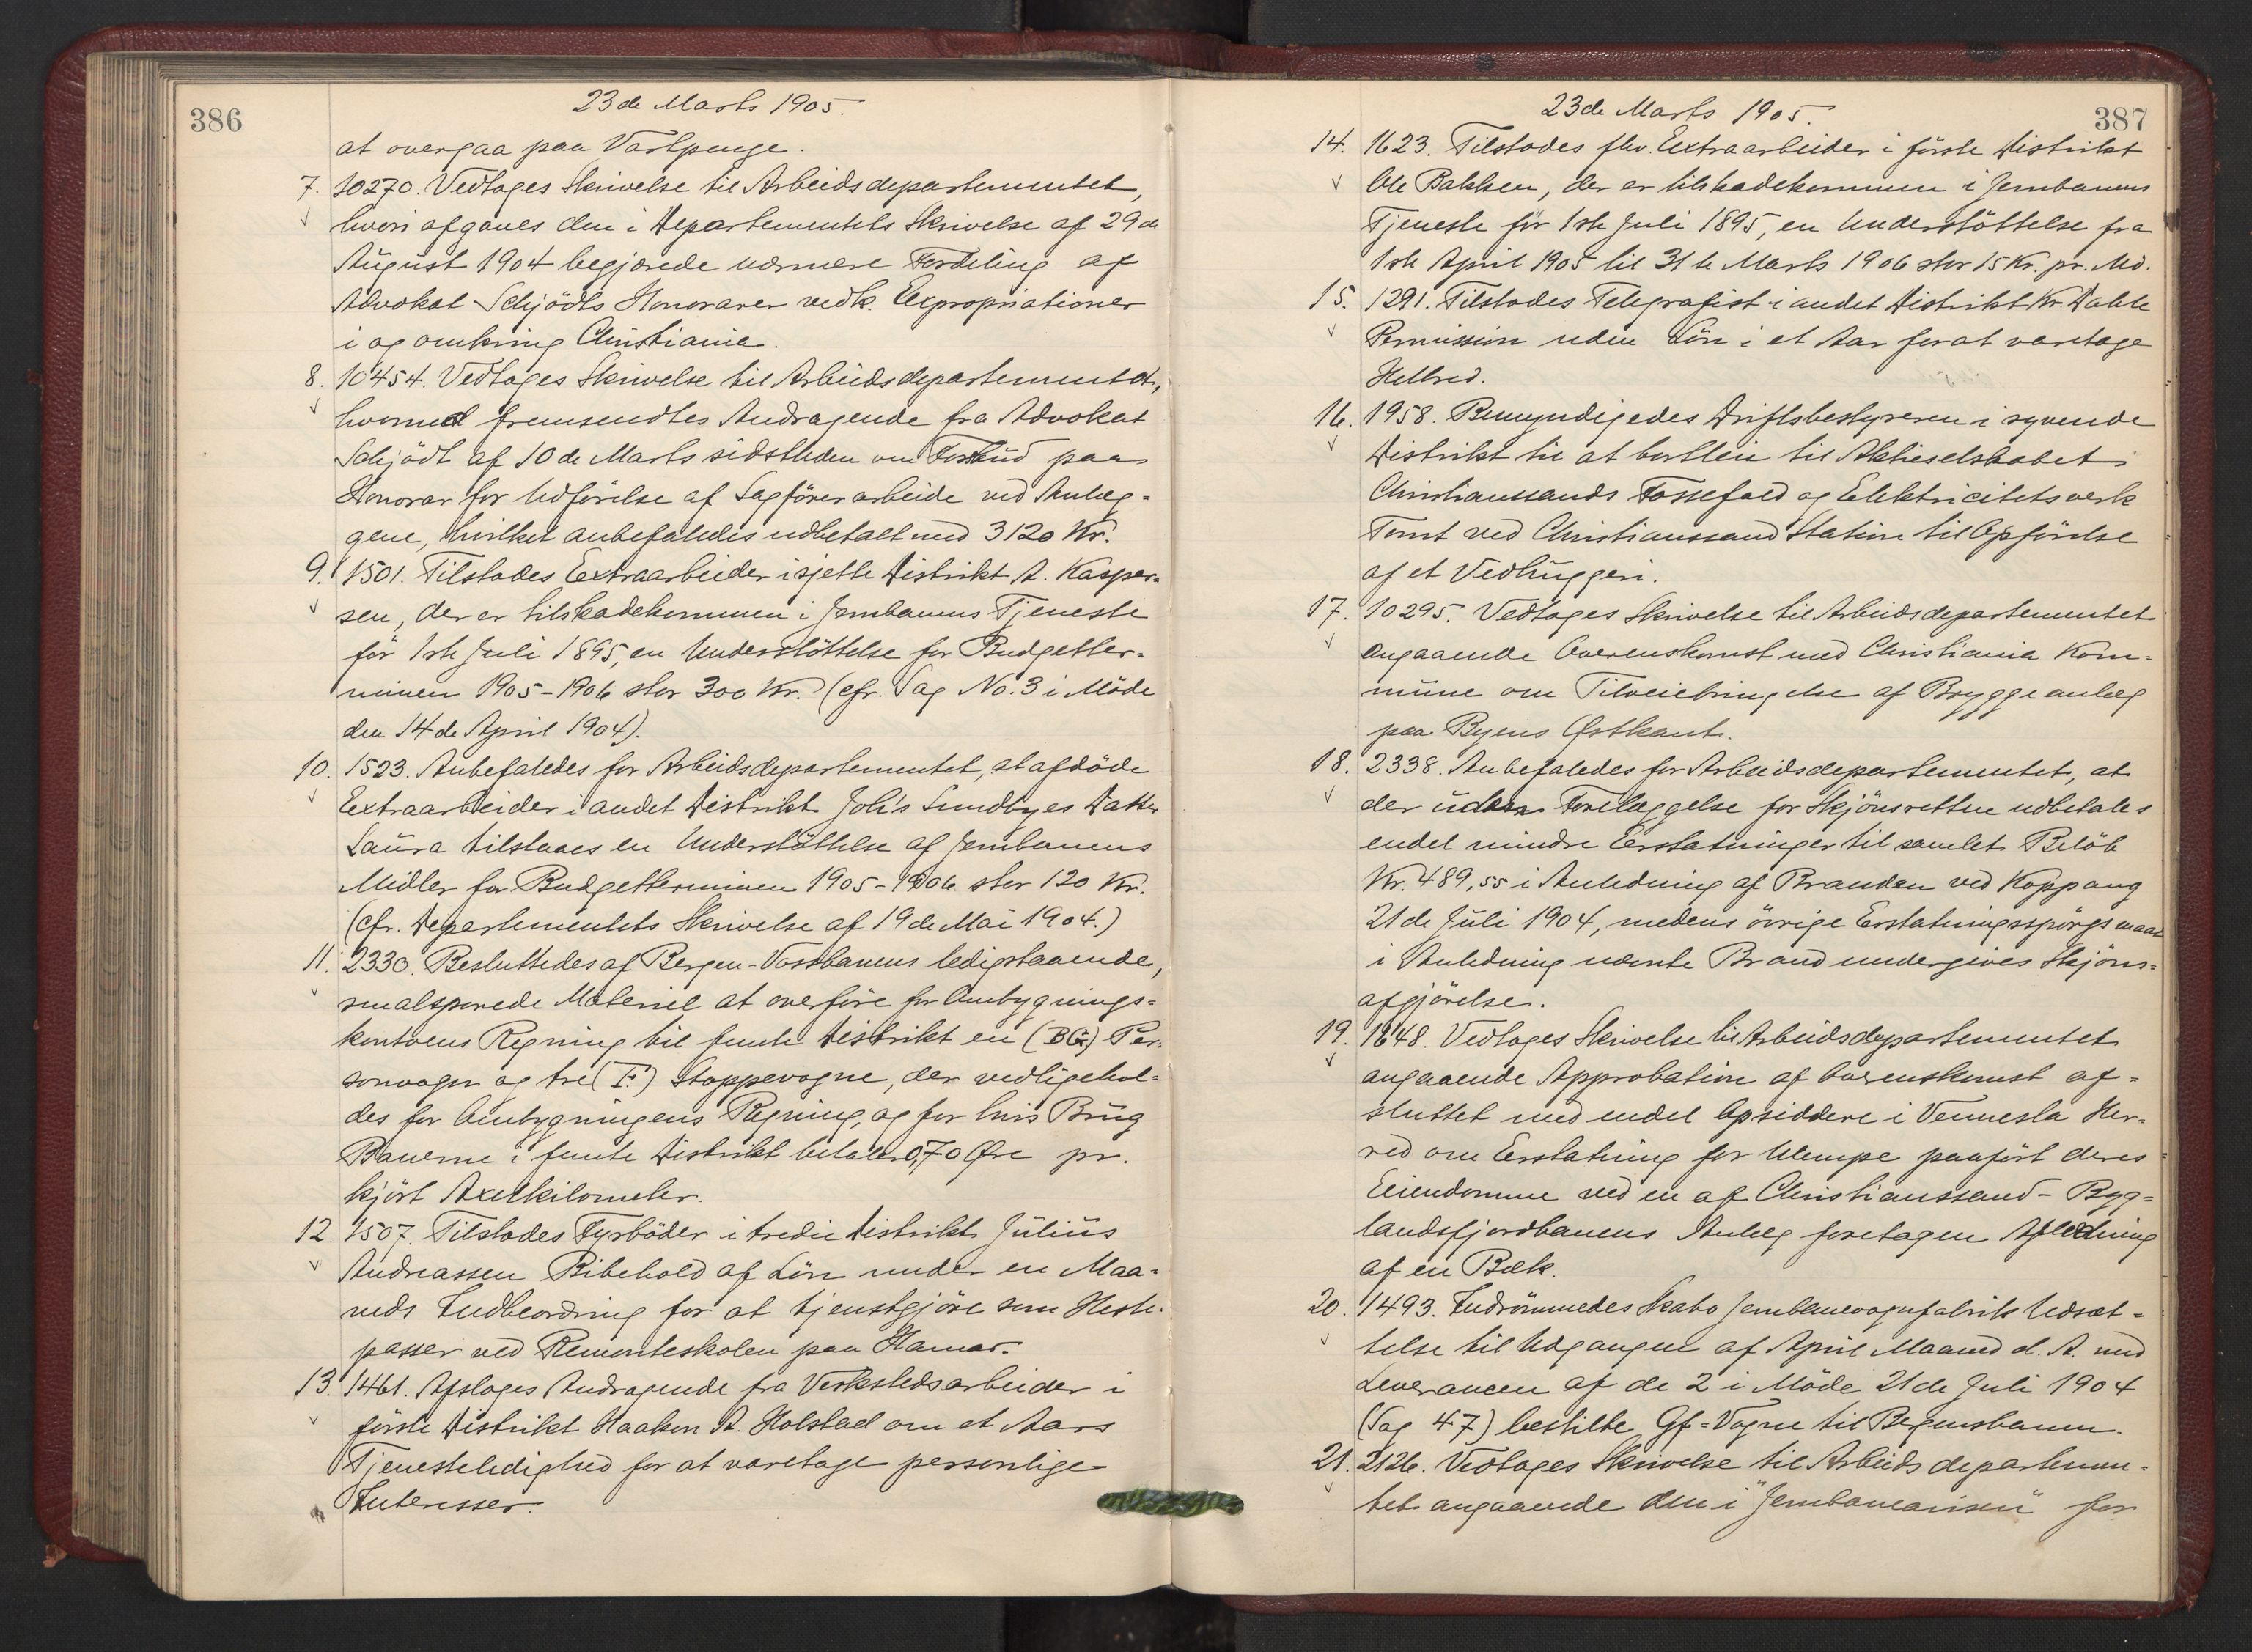 386
23de Marts 1905.
at overgaa paa Vartpenge.
7. 10270. Vedtoges Skrivelse til Arbeidsdepartementet,
hvori afgaves den i Departementets Skrivelse af 29de
August 1904 begjærede nærmere Fordeling af
Advokat Schjödts Honorarer vedk. Expropriationer
i og omkring Christiania.
8. 10454. Vedtoges Skrivelse til Arbeidsdepartementet,
hvormed fremsendtes Andragende fra Advokat
Schjödt af 10de Marts sidstleden om Forskud paa
Honorar for Udförelse af Sagförerarbeide ved Anlæg-
gene, hvilket anbefaledes udbetalt med 3120 Kr.
9. 1501. Tilstodes Extraarbeider i sjette Distrikt A. Kasper-
sen, der er tilskadekommen i Jernbanens Tjeneste
för 1ste Juli 1895, en Understöttelse for Budgetter-
minen 1905-1906 stor 300 Kr. (cfr. Sag No. 3 i Möde
den 14de April 1904).
10. 1523. Anbefaledes for Arbeidsdepartementet, at afdöde
Extraarbeider i andet Distrikt Joh's Lundbyes Datter
Laura tilstaaes en Understöttelse af Jernbanens
Midler for Budgetterminen 1905-1906 stor 120 Kr.
(cfr. Departementets Skrivelse af 19de Mai 1904.)
11. 2330. Besluttedes af Bergen-Vossbanens ledigstaaende,
smalsporede Materiel at overföre for Ombygnings-
kontoens Regning til femte Distrikt en (BG) Per-
sonvogn og tre (F.) Stoppevogne, der vedligehol-
des for Ombygningens Regning, og for hvis Brug
Banerne i femte Distrikt betaler 0,70 Øre pr.
kjört Axelkilometer.
12. 1507. Tilstodes Fyrböder i tredie Distrikt Julius
Andreassen Bibehold af Lön under en Maa-
neds Indbeordring for at tjenstgjöre som Heste-
passer ved Remonteskolen paa Hamar.
13. 1461. Afsloges Andragende fra Verkstedsarbeider i
förste Distrikt Haakon A. Holstad om et Aars
Tjenesteledighed for at varetage personlige
Interesser.
387
23de Marts 1905.
14. 1623. Tilstodes fhv. Extraarbeider i förste Distrikt
Ole Bakken, der er tilskadekommen i Jernbanens
Tjeneste för 1ste Juli 1895, en Understöttelse fra
1ste April 1905 til 31te Marts 1906 stor 15 Kr. pr. Md.
15. 1291. Tilstodes Telegrafist i andet Distrikt Kr. Dahle
Permission uden Lön i et Aar for at varetage
Helbred.
16. 1958. Bemyndigedes Driftsbestyreren i syvende
Distrikt til at bortleie til Aktieselskabet
Christianssands Fossefald og Elektricitetsverk
Tomt ved Christianssand Station til Opförelse
af et Vedhuggeri.
17. 10295. Vedtoges Skrivelse til Arbeidsdepartementet
angaaende Overenskomst med Christiania Kom-
mune om Tilveiebringelse af Bryggeanlæg
paa Byens Østkant.
18. 2338. Anbefaledes for Arbeidsdepartementet, at
der uden Forelæggelse for Skjönsretten udbetales
endel mindre Erstatninger til samlet Belöb
Kr. 489,55 i Anledning af Branden ved Koppang
21de Juli 1904, medens övrige Erstatningsspörgsmaal
i Anledning nævnte Brand undergives Skjöns-
afgjörelse.
19. 1648. Vedtoges Skrivelse til Arbeidsdepartementet
angaaende Approbation af Overenskomst af-
sluttet med endel Opsiddere i Vennesla Her-
red om Erstatning for Ulempe paafört deres
Eiendomme ved en af Christianssand-Byg-
landsfjordbanens Anlæg foretagen Afledning
af en Bæk.
20. 1493. Indrömmedes Skabo Jernbanevognfabrik Udsæt-
telse til Udgangen af April Maaned d. A. med
Leverancen af de 2 i Möde 21de Juli 1904
(Sag 47) bestilte Gf-Vogne til Bergensbanen.
21. 2126. Vedtoges Skrivelse til Arbeidsdepartemen-
tet angaaende den i "Jernbaneavisen" for